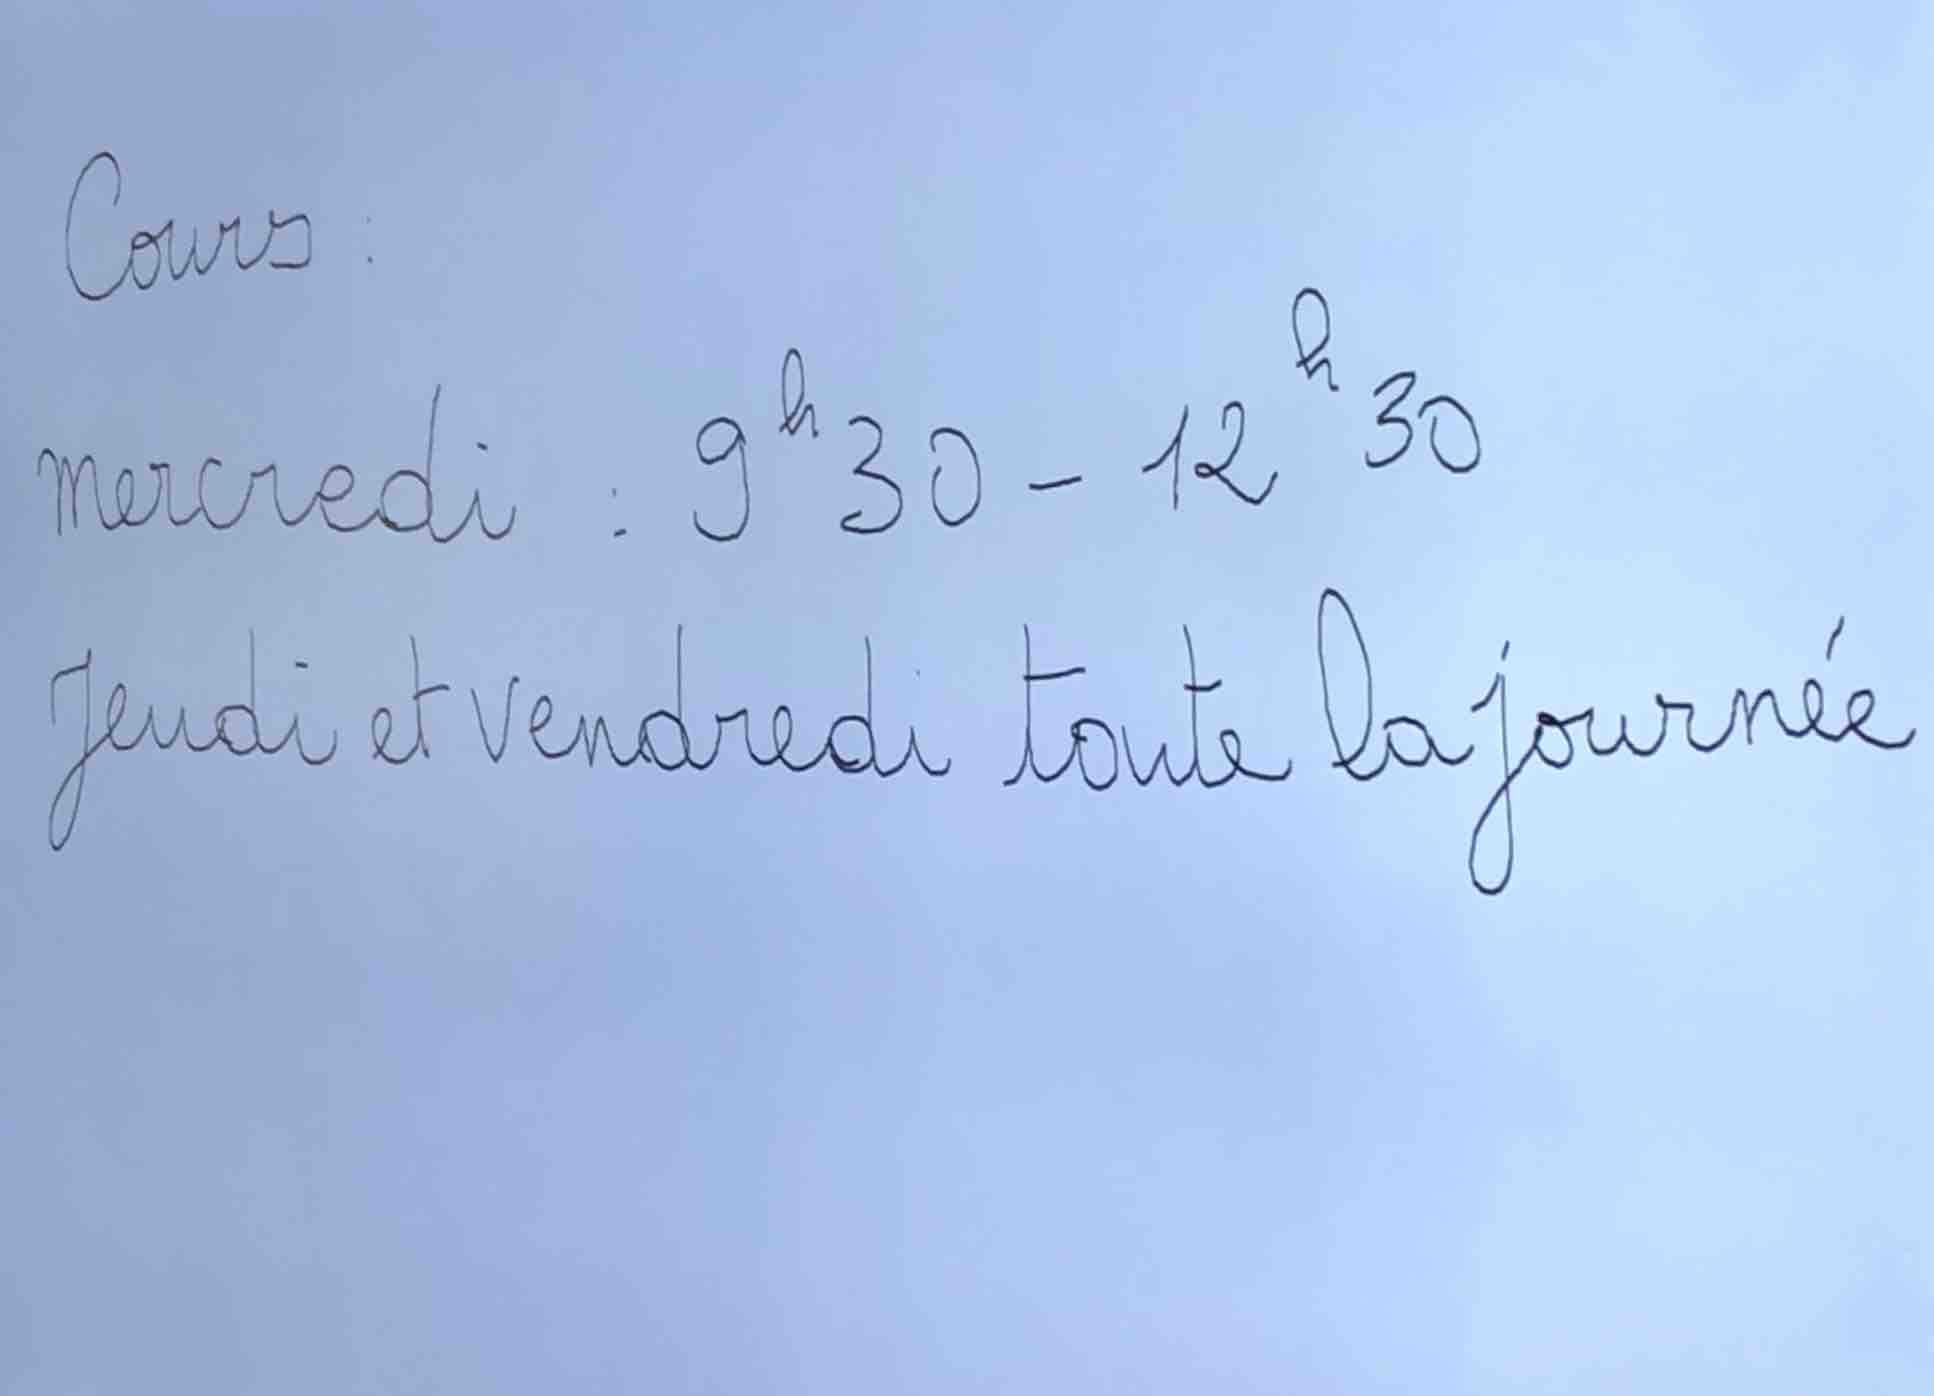 Cours :
mercredi : 9h30 - 12h30
Jeudi et vendredi toute la journée